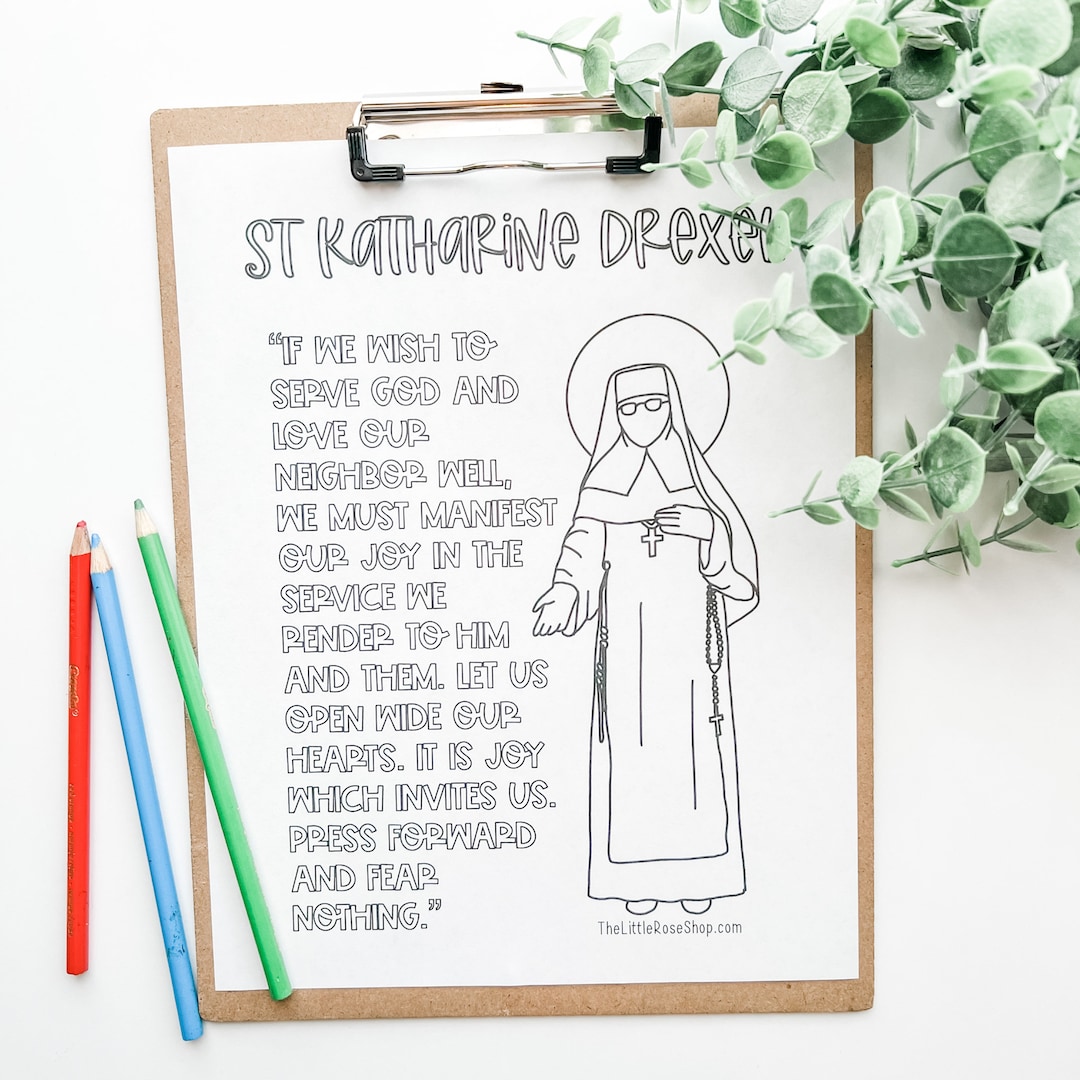 ST KATHARINE DREXEL
“IF WE WISH TO
SERVE GOD AND
LOVE OUR
NEIGHBOR WELL,
WE MUST MANIFEST
OUR JOY IN THE
SERVICE WE
RENDER TO HIM
AND THEM. LET US
OPEN WIDE OUR
HEARTS. IT IS JOY
WHICH INVITES US.
PRESS FORWARD
AND FEAR
NOTHING.”
TheLittleRoseShop.com